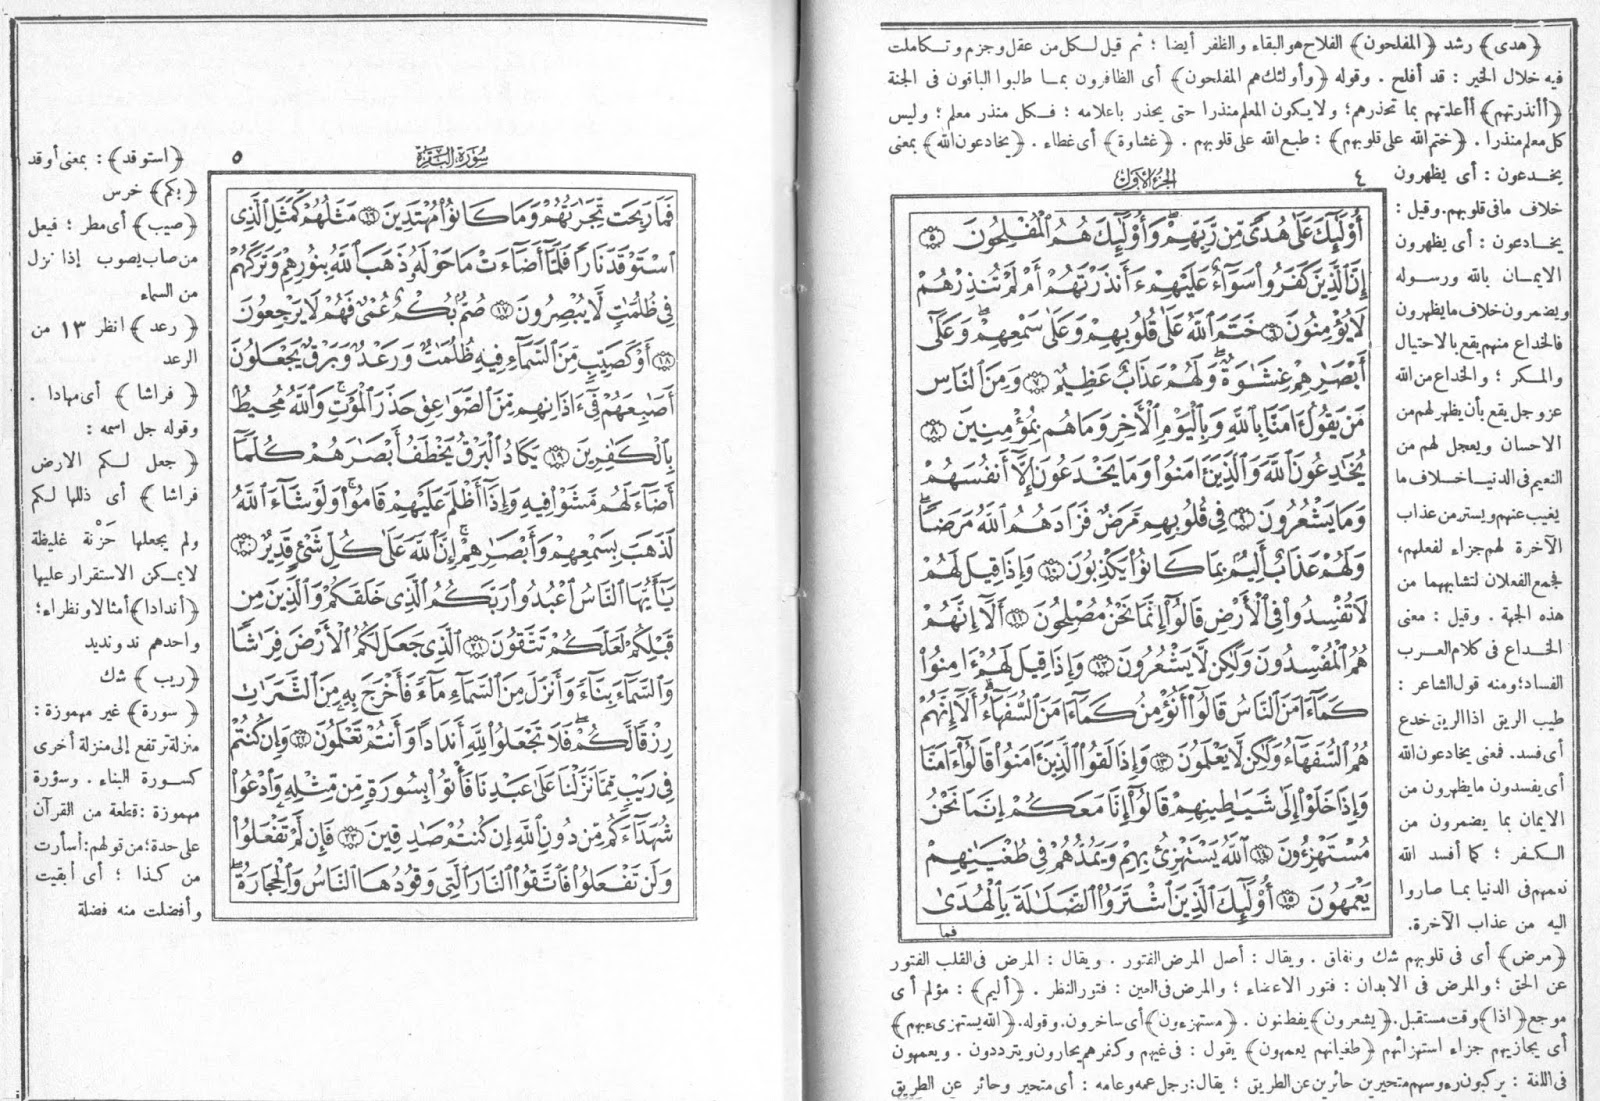 ﴿هدى﴾ رشد ﴿المفلحون﴾ الفلاح هو البقاء والظفر أيضا ؛ ثم قيل لكل من عقل وجزم وتكاملت
فيه خلال الخير : قد أفلح . وقوله ﴿وأولئك هم المفلحون﴾ أى الظافرون بما طالبوا الباقون فى الجنة
﴿أأنذرتهم﴾ أأعلمتهم بما تحذرهم؛ ولا يكون المعلم منذرا حتى يحذر باعلامه ؛ فكل منذر معلم ؛ وليس
كل معلم منذرا . ﴿ختم الله على قلوبهم﴾ : طبع الله على قلوبهم . ﴿غشاوة﴾ أى غطاء . ﴿يخادعون الله﴾ بمعنى
يخدعون : أى يظهرون
خلاف مافى قلوبهم. وقيل :
يخادعون : أى يظهرون
الايمان بالله ورسوله
ويضمرون خلاف مايظهرون
فالخداع منهم يقع بالاحتيال
والمكر ؛ والخداع من الله
عزوجل يقع بأن يظهر لهم من
الاحسان ويعجل لهم من
النعيم فى الدنيا خلاف ما
يغيب عنهم ويستر من عذاب
الآخرة لهم جزاء لفعلهم،
فجمع الفعلان لتشابههما من
هذه الجهة . وقيل : معنى
الخداع فى كلام العرب
الفساد؛ ومنه قول الشاعر :
طيب الريق اذا الريق خدع
أى فسد. فمعنى يخادعون الله
أى يفسدون مايظهرون من
الايمان بما يضمرون من
الكفر ؛ كما أفسد الله
نعمهم فى الدنيا بما صاروا
اليه من عذاب الآخرة.
٤ الجزء الأول
أُوْلَٰٓئِكَ عَلَىٰ هُدًى مِّن رَّبِّهِمْ ۖ وَأُوْلَٰٓئِكَ هُمُ ٱلْمُفْلِحُونَ ۝٥
إِنَّ ٱلَّذِينَ كَفَرُوا۟ سَوَآءٌ عَلَيْهِمْ ءَأَنذَرْتَهُمْ أَمْ لَمْ تُنذِرْهُمْ
لَا يُؤْمِنُونَ ۝٦ خَتَمَ ٱللَّهُ عَلَىٰ قُلُوبِهِمْ وَعَلَىٰ سَمْعِهِمْ ۖ وَعَلَىٰٓ
أَبْصَٰرِهِمْ غِشَٰوَةٌ ۖ وَلَهُمْ عَذَابٌ عَظِيمٌ ۝٧ وَمِنَ ٱلنَّاسِ
مَن يَقُولُ ءَامَنَّا بِٱللَّهِ وَبِٱلْيَوْمِ ٱلْأَخِرِ وَمَا هُم بِمُؤْمِنِينَ ۝٨
يُخَٰدِعُونَ ٱللَّهَ وَٱلَّذِينَ ءَامَنُوا۟ وَمَا يَخْدَعُونَ إِلَّآ أَنفُسَهُمْ
وَمَا يَشْعُرُونَ ۝٩ فِى قُلُوبِهِم مَّرَضٌ فَزَادَهُمُ ٱللَّهُ مَرَضًا ۖ
وَلَهُمْ عَذَابٌ أَلِيمٌۢ بِمَا كَانُوا۟ يَكْذِبُونَ ۝١٠ وَإِذَا قِيلَ لَهُمْ
لَا تُفْسِدُوا۟ فِى ٱلْأَرْضِ قَالُوٓا۟ إِنَّمَا نَحْنُ مُصْلِحُونَ ۝١١ أَلَآ إِنَّهُمْ
هُمُ ٱلْمُفْسِدُونَ وَلَٰكِن لَّا يَشْعُرُونَ ۝١٢ وَإِذَا قِيلَ لَهُمْ ءَامِنُوا۟
كَمَآ ءَامَنَ ٱلنَّاسُ قَالُوٓا۟ أَنُؤْمِنُ كَمَآ ءَامَنَ ٱلسُّفَهَآءُ ۗ أَلَآ إِنَّهُمْ
هُمُ ٱلسُّفَهَآءُ وَلَٰكِن لَّا يَعْلَمُونَ ۝١٣ وَإِذَا لَقُوا۟ ٱلَّذِينَ ءَامَنُوا۟ قَالُوٓا۟ ءَامَنَّا
وَإِذَا خَلَوْا۟ إِلَىٰ شَيَٰطِينِهِمْ قَالُوٓا۟ إِنَّا مَعَكُمْ إِنَّمَا نَحْنُ
مُسْتَهْزِءُونَ ۝١٤ ٱللَّهُ يَسْتَهْزِئُ بِهِمْ وَيَمُدُّهُمْ فِى طُغْيَٰنِهِمْ
يَعْمَهُونَ ۝١٥ أُوْلَٰٓئِكَ ٱلَّذِينَ ٱشْتَرَوُا۟ ٱلضَّلَٰلَةَ بِٱلْهُدَىٰ
فما
﴿مرض﴾ أى فى قلوبهم شك ونفاق . ويقال : أصل المرض الفتور . ويقال : المرض فى القلب الفتور
عن الحق ؛ والمرض فى الابدان : فتور الاعضاء ؛ والمرض فى العين : فتور النظر . ﴿أليم﴾ : مؤلم أى
موجع ﴿اذا﴾ وقت مستقبل. ﴿يشعرون﴾ يفطنون . ﴿مستهزءون﴾ أى ساخرون. وقوله. ﴿الله يستهزىء بهم﴾
أى يجازيهم جزاء استهزائهم ﴿طغيانهم يعمهون﴾ يقول : فى غيهم وكفرهم يحارون ويترددون . ويعمهون
فى اللغة : يركبون رءوسهم متحيرين حائرين عن الطريق ؛ يقال: رجل عمه وعامه : أى متحير وحائر عن الطريق
سورة البقرة ٥
فَمَا رَبِحَت تِّجَٰرَتُهُمْ وَمَا كَانُوا۟ مُهْتَدِينَ ۝١٦ مَثَلُهُمْ كَمَثَلِ ٱلَّذِى
ٱسْتَوْقَدَ نَارًا فَلَمَّآ أَضَآءَتْ مَا حَوْلَهُۥ ذَهَبَ ٱللَّهُ بِنُورِهِمْ وَتَرَكَهُمْ
فِى ظُلُمَٰتٍ لَّا يُبْصِرُونَ ۝١٧ صُمٌّۢ بُكْمٌ عُمْىٌ فَهُمْ لَا يَرْجِعُونَ
۝١٨ أَوْ كَصَيِّبٍ مِّنَ ٱلسَّمَآءِ فِيهِ ظُلُمَٰتٌ وَرَعْدٌ وَبَرْقٌ يَجْعَلُونَ
أَصَٰبِعَهُمْ فِىٓ ءَاذَانِهِم مِّنَ ٱلصَّوَٰعِقِ حَذَرَ ٱلْمَوْتِ ۚ وَٱللَّهُ مُحِيطٌۢ
بِٱلْكَٰفِرِينَ ۝١٩ يَكَادُ ٱلْبَرْقُ يَخْطَفُ أَبْصَٰرَهُمْ ۖ كُلَّمَآ
أَضَآءَ لَهُم مَّشَوْا۟ فِيهِ وَإِذَآ أَظْلَمَ عَلَيْهِمْ قَامُوا۟ ۚ وَلَوْ شَآءَ ٱللَّهُ
لَذَهَبَ بِسَمْعِهِمْ وَأَبْصَٰرِهِمْ ۚ إِنَّ ٱللَّهَ عَلَىٰ كُلِّ شَىْءٍ قَدِيرٌ ۝٢٠
يَٰٓأَيُّهَا ٱلنَّاسُ ٱعْبُدُوا۟ رَبَّكُمُ ٱلَّذِى خَلَقَكُمْ وَٱلَّذِينَ مِن
قَبْلِكُمْ لَعَلَّكُمْ تَتَّقُونَ ۝٢١ ٱلَّذِى جَعَلَ لَكُمُ ٱلْأَرْضَ فِرَٰشًا
وَٱلسَّمَآءَ بِنَآءً وَأَنزَلَ مِنَ ٱلسَّمَآءِ مَآءً فَأَخْرَجَ بِهِۦ مِنَ ٱلثَّمَرَٰتِ
رِزْقًا لَّكُمْ ۖ فَلَا تَجْعَلُوا۟ لِلَّهِ أَندَادًا وَأَنتُمْ تَعْلَمُونَ ۝٢٢ وَإِن كُنتُمْ
فِى رَيْبٍ مِّمَّا نَزَّلْنَا عَلَىٰ عَبْدِنَا فَأْتُوا۟ بِسُورَةٍ مِّن مِّثْلِهِۦ وَٱدْعُوا۟
شُهَدَآءَكُم مِّن دُونِ ٱللَّهِ إِن كُنتُمْ صَٰدِقِينَ ۝٢٣ فَإِن لَّمْ تَفْعَلُوا۟
وَلَن تَفْعَلُوا۟ فَٱتَّقُوا۟ ٱلنَّارَ ٱلَّتِى وَقُودُهَا ٱلنَّاسُ وَٱلْحِجَارَةُ ۖ
﴿استوقد﴾ : بمعنى أوقد
﴿بكم﴾ خرس
﴿صيب﴾ أى مطر ؛ فيعل
من صاب يصوب إذا نزل
من السماء
﴿رعد﴾ انظر ١٣ من
الرعد
﴿فراشا﴾ أى مهادا .
وقوله جل اسمه :
﴿جعل لكم الارض
فراشا﴾ أى ذللها لكم
ولم يجعلها حَزْنة غليظة
لايمكن الاستقرار عليها
﴿أندادا﴾ أمثالا ونظراء؛
واحدهم ند ونديد
﴿ريب﴾ شك
﴿سورة﴾ غير مهموزة :
منزلة ترتفع إلى منزلة أخرى
كسورة البناء . وسؤرة
مهموزة : قطعة من القرآن
على حدة؛ من قولهم: أسأرت
من كذا ؛ أى أبقيت
وأفضلت منه فضلة